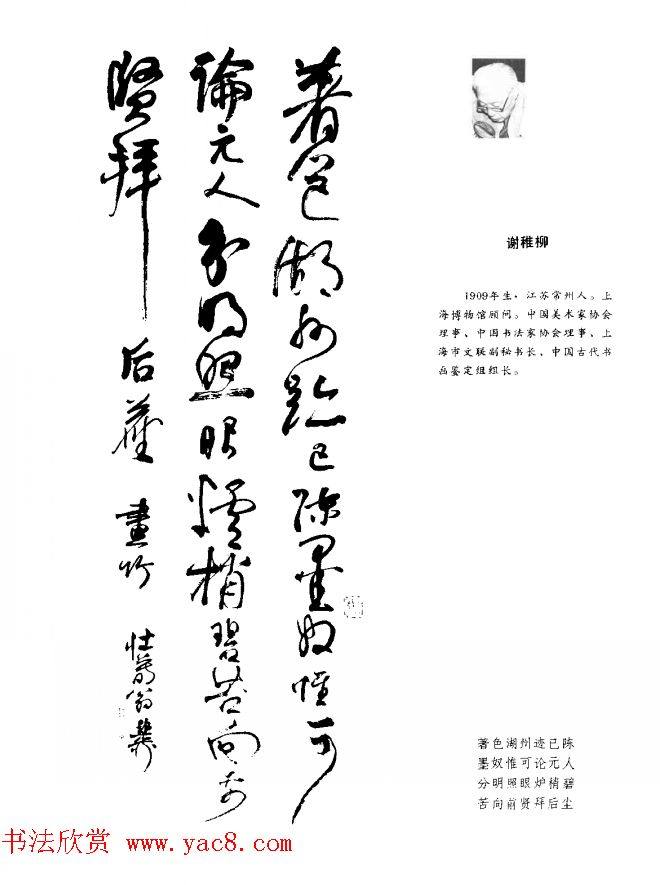 著色湖州跡已陳墨奴惟可
論元人分明照眼爐梢碧苦向前
賢拜后塵 畫竹 壯暮翁
谢稚柳
1909年生，江苏常州人。上
海博物馆顾问。中国美术家协会
理事、中国书法家协会理事、上
海市文联副秘书长、中国古代书
画鉴定组组长。
著色湖州迹已陈
墨奴惟可论元人
分明照眼炉梢碧
苦向前贤拜后尘
书法欣赏 www.yac8.com